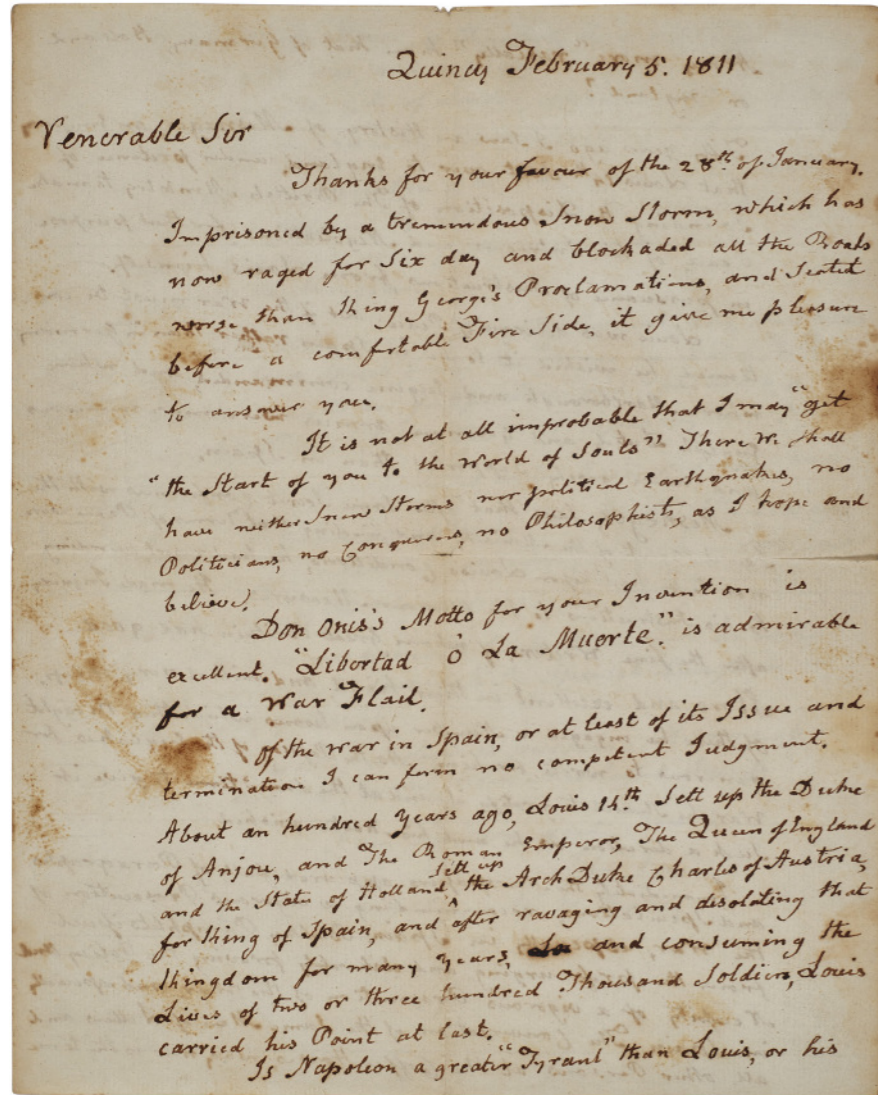 Quincy February 5. 1811
Venerable Sir
Thanks for your favour of the 28th. of January.
Imprisoned by a tremendous Snow Storm, which has
now raged for Six day and blockaded all the Roads
worse than King George's Proclamations, and Seated
before a comfortable Fire Side, it give me pleasure
to answer you.
It is not at all improbable that I may "get
"the Start of you to the World of Souls" There We shall
have neither Snow Storms nor political Earthquakes, no
Politicians, no Conquerors, no Philosophists, as I hope and
believe.
Don Onis's Motto for your Invention is
excellent. "Libertad ò La Muerte." is admirable
for a War Flail.
Of the war in Spain, or at least of its Issue and
termination I can form no competent Judgment.
About an hundred years ago, Louis 14th. Sett up the Duke
of Anjou, and The Roman Emperor, The Queen of England
and the State of Holland, sett up the Arch Duke Charles of Austria,
for King of Spain, and after ravaging and desolating that
Kingdom for many years, and consuming the
Lives of two or three hundred Thousand Soldiers, Louis
carried his Point at last.
Is Napoleon a greater "Tyrant" than Louis, or his